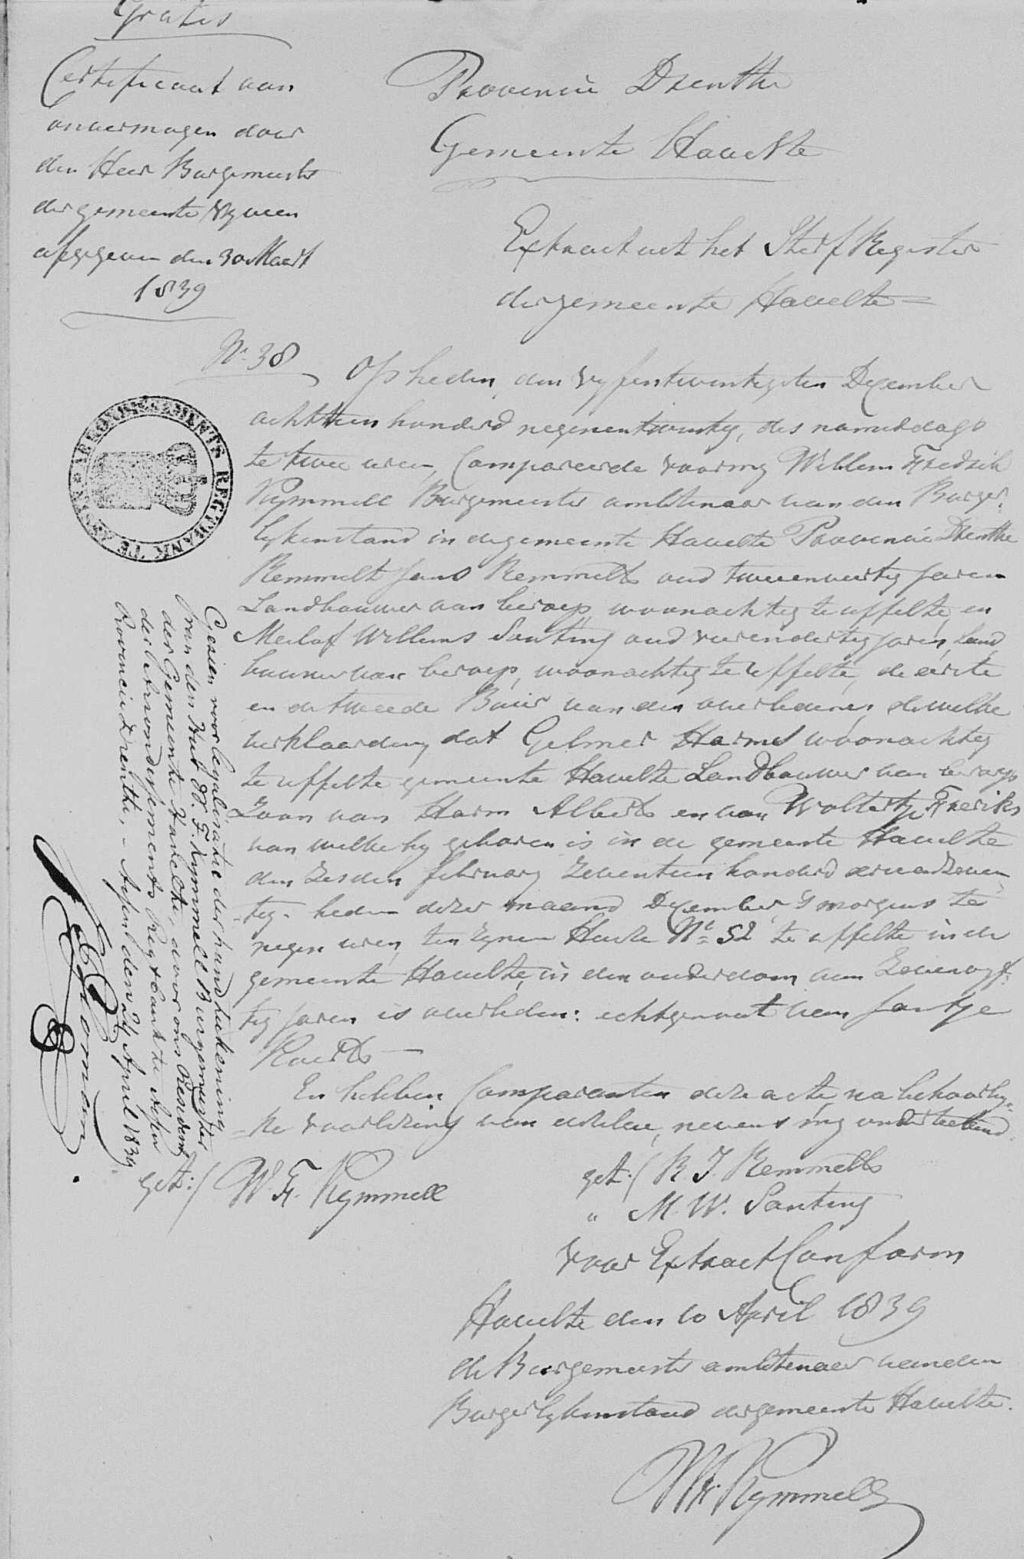 Gratis
Certificaat van
onvermogen door
den Heer Burgemeester
der gemeente Vyween
afgegeven den 30 Maart
1839
Provincie Drenthe
Gemeente Havelte
Extract uit het Sterf Register
der gemeente Havelte
No. 38
Op heden den vyfentwintigsten December
achttien honderd negenentwintig, des namiddags
te twee uren, Compareerde voor my Willem Fredrik
Kymmell Burgemeester ambtenaar van den Burger-
lykenstand in de gemeente Havelte Provincie Drenthe
Remmelt Jans Remmelts oud tweeenveertig Jaren
Landbouwer van beroep, woonachtig te uffelte, en
Meilof Willems Santing oud vierendertig jaren, land
bouwer van beroep, woonachtig te uffelte, de eerste
en de tweede Buur van den overledenen, dewelke
verklaarden, dat Gelmer Harms woonachtig
te uffelte gemeente Havelte Landbouwer van beroep
Zoon van Harm Alberts en van Woltertje Freriks
van welke hy geboren is in de gemeente Havelte
den Zesden february Zeventien honderd
tig. heden dezer maand December, 's morgens te
negen uren, ten Zynen Huize No. 52 te uffelte in de
gemeente Havelte, in den ouderdom van Zevenvyf-
tig Jaren is overleden: echtgenoot van Jantje
Roelfs
En hebben Comparanten deze acte, na behoorly-
ke voorlezing van dezelve, nevens my onderteekend.
get:/ W. F. Kymmell
get:/ R J. Remmelts
" M. W. Santing
Voor Extract Conform
Havelte den 10 April 1839
de Burgemeester ambtenaar van den
Burgerlykenstand der gemeente Havelte.
WF Kymmell
ARRONDISSEMENTS REGTBANK TE ASSEN
Gezien voor legalisatie der handtekening
van den Heer W. F. Kymmell Burgemeester
der Gemeente Havelte, door ons President
der Arrondissements Regtbank te Assen
Provincie Drenthe, - Assen den 24 April 1839